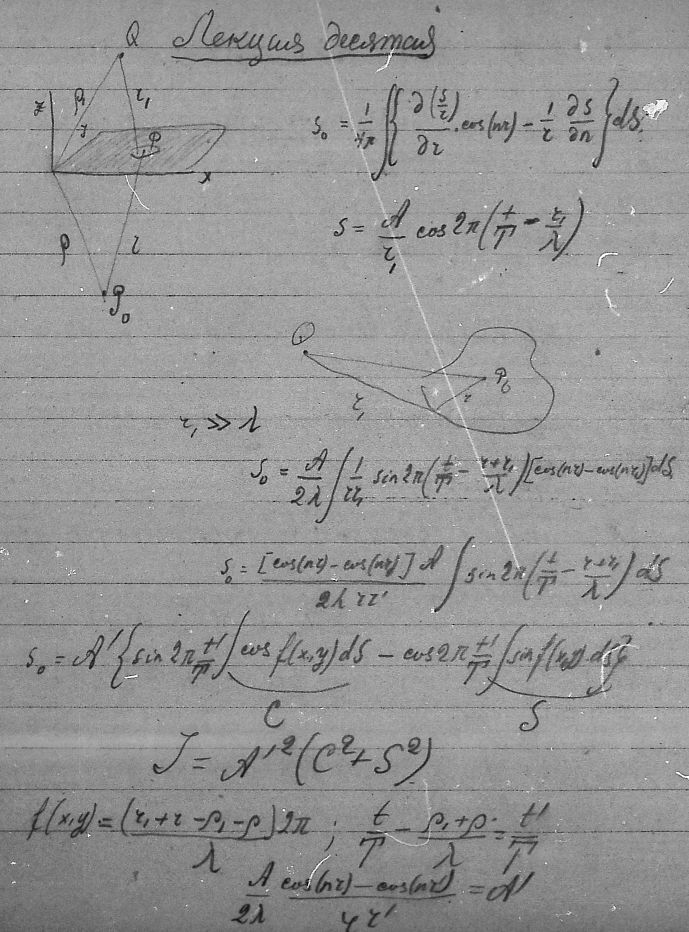 Лекция десятая
Q
z
ρ₁
r₁
y
P
x
ρ
r
P₀
s₀ = 1/4π ∫{ ∂(s/r)/∂r · cos(nr) − 1/r ∂s/∂n } dS
s = A/r₁ cos 2π(t/T − r₁/λ)
Q
P₀
r₁
r
r₁ ≫ λ
s₀ = A/2λ ∫ 1/rr₁ sin 2π(t/T − r+r₁/λ) [cos(nr) − cos(nr₁)] dS
s₀ = [cos(nr) − cos(nr₁)] A / 2λ rr' ∫ sin 2π(t/T − r+r₁/λ) dS
s₀ = A' {sin 2π t'/T ∫ cos f(x,y) dS − cos 2π t'/T ∫ sin f(x,y) dS}
C S
J = A'²(C² + S²)
f(x,y) = (r₁ + r − ρ₁ − ρ)2π / λ ; t/T − ρ₁+ρ/λ = t'/T
A/2λ cos(nr) − cos(nr₁) / rr' = A'